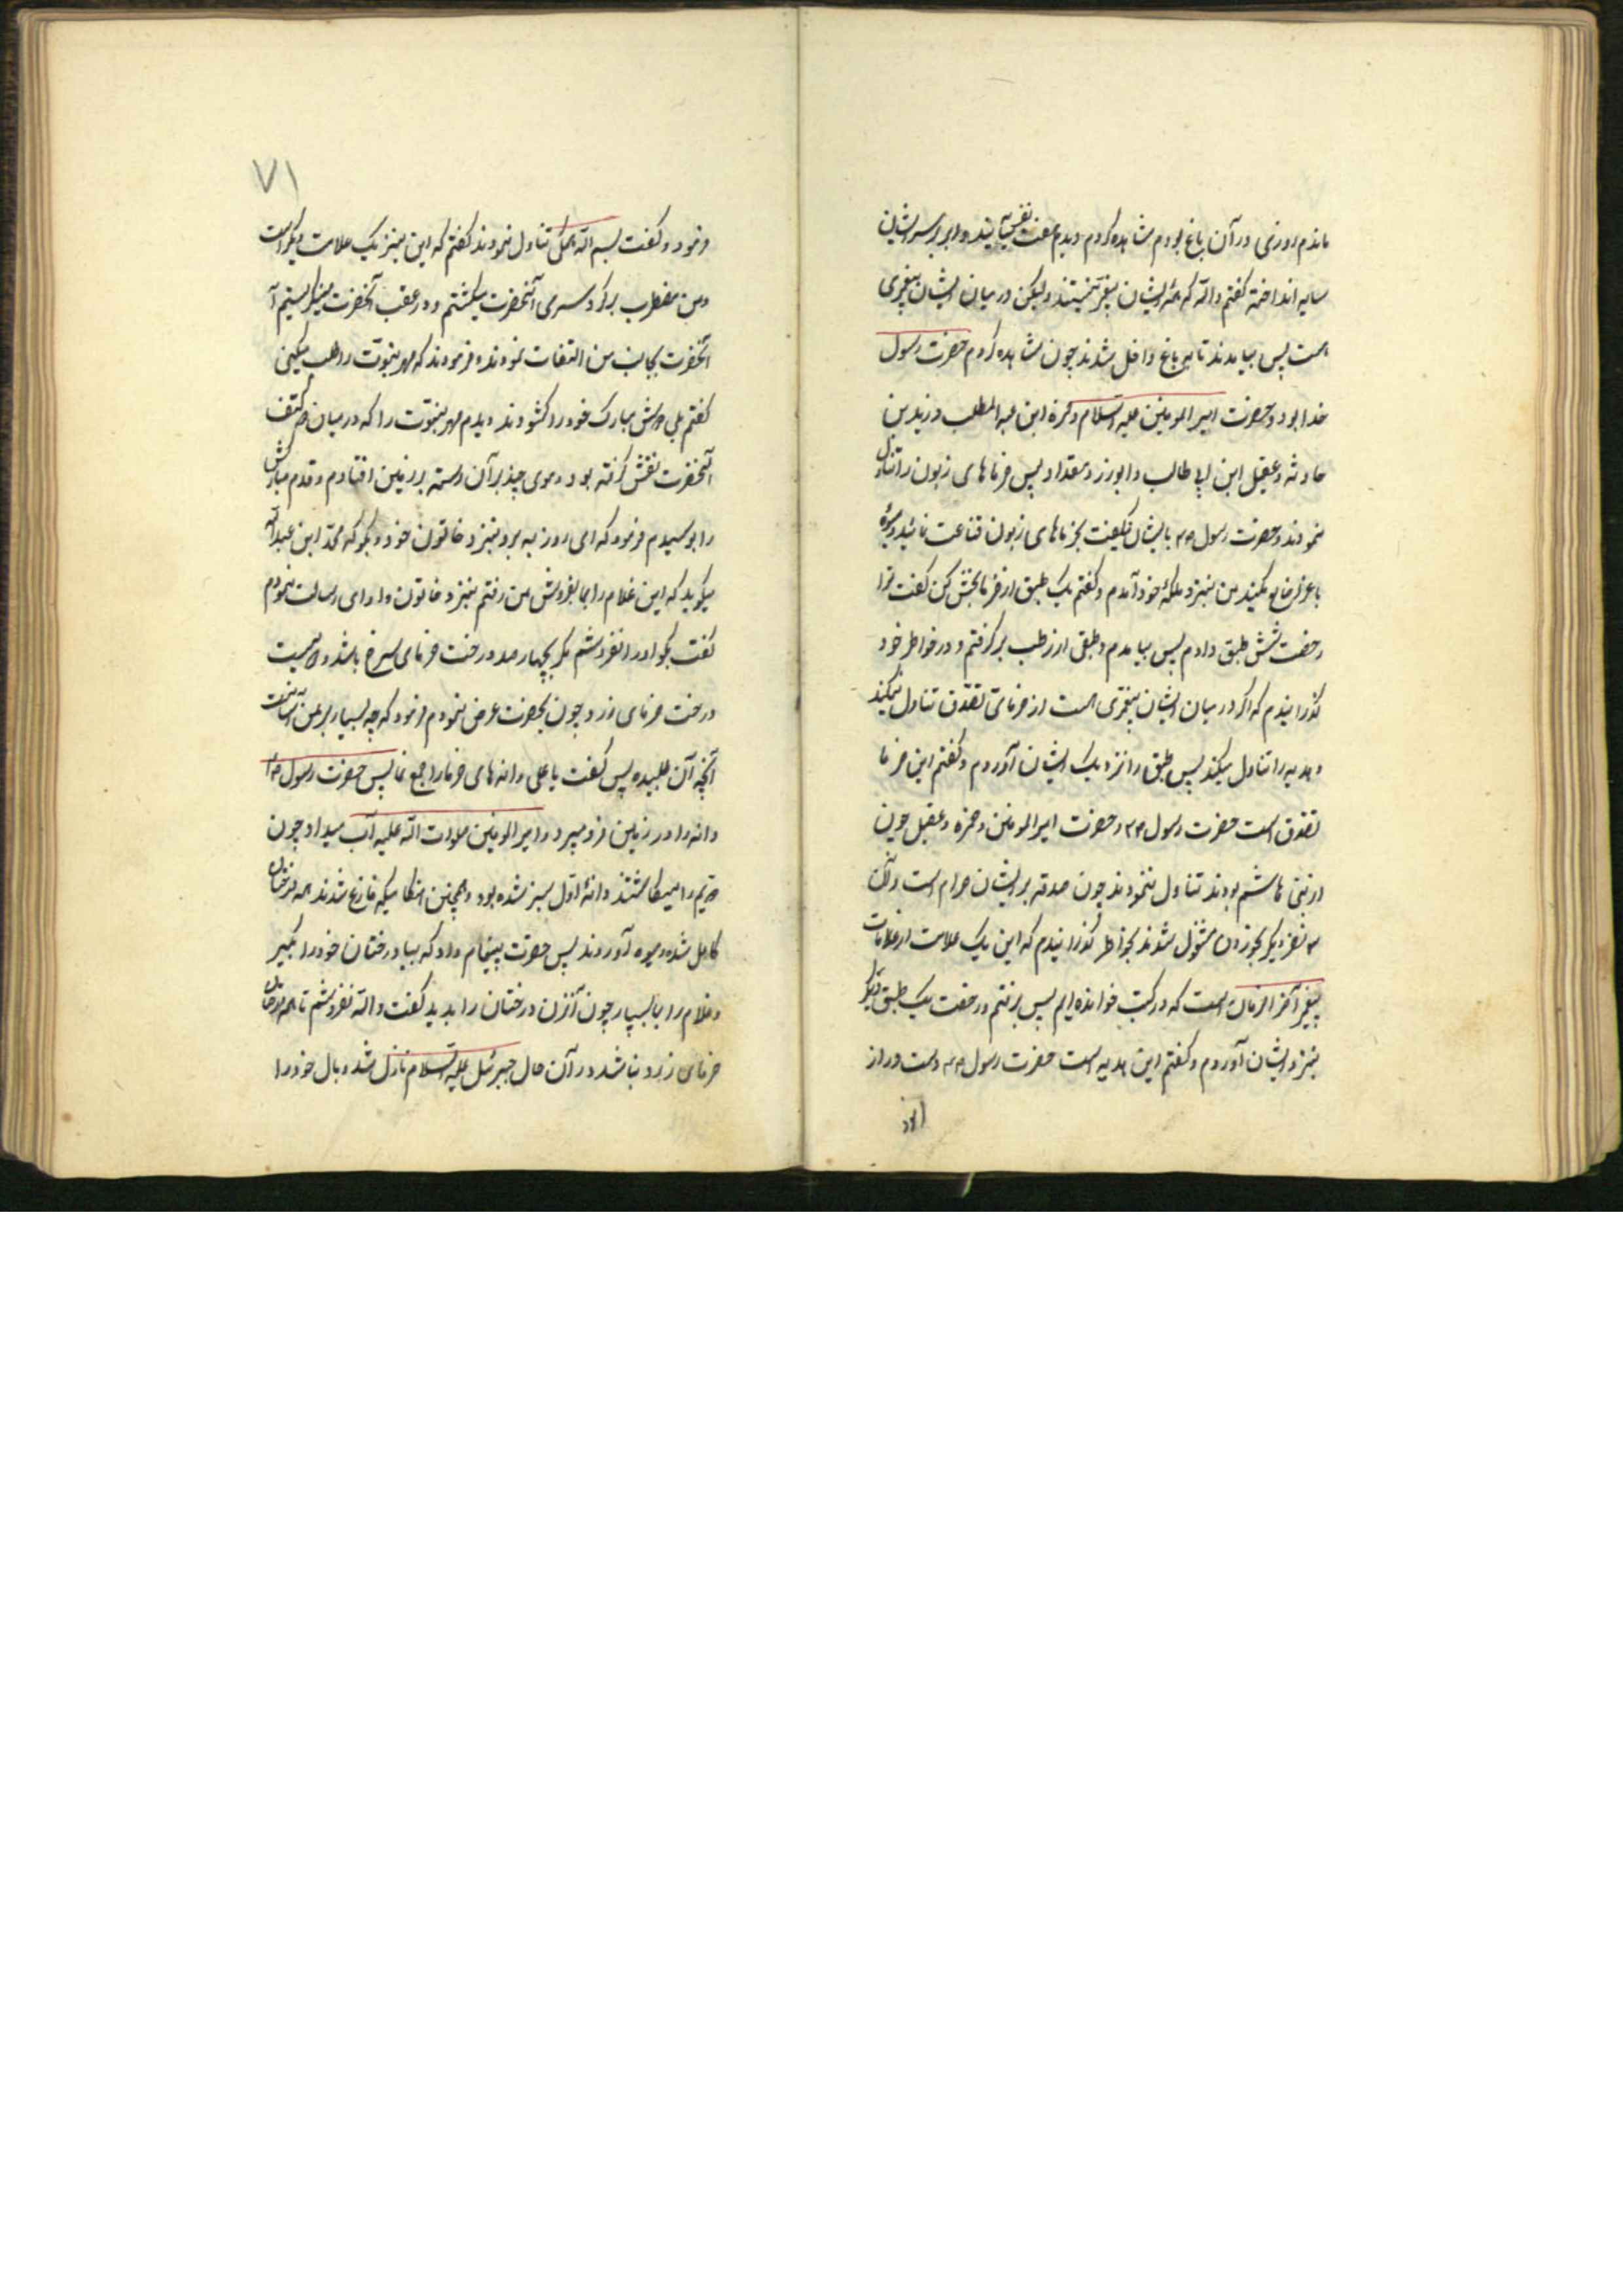 ماندم روزی در آن باغ بودم مشاهده کردم دیدم هفت نفر می‌آیند و ابر بر سر ایشان
سایه انداخته گفتم والله که همه ایشان پیغمبر نیستند ولیکن در میان ایشان پیغمبری
است پس بیامدند تا باین باغ داخل شدند چون مشاهده کردم حضرت رسول
خدا بود و حضرت امیر المومنین علیه السلام و حمزه ابن عبد المطلب و زید بن
حارثه و عقیل ابن ابی طالب و ابوذر و مقداد پس خرماهای زبون را تناول
نمودند و حضرت رسول ص بایشان میگفت بخرماهای زبون قناعت نمائید و میوه
باغ را ضایع مکنید من بنزد ملکهٔ خود آمدم و گفتم یک طبق از خرما بمن بخش کن گفت ترا
رخصت شش طبق دادم پس بیامدم و طبقی از رطب برگرفتم و در خواطر خود
گذرانیدم که اگر در میان ایشان پیغمبری است از خرمای تصدّق تناول نمیکند
و هدیه را تناول میکند پس طبق را نزدیک ایشان آوردم و گفتم این خرما
تصدّق است حضرت رسول ص و حضرت امیر المومنین و حمزه و عقیل چون
از بنی هاشم بودند تناول ننمودند چون صدقه بر ایشان حرام است و آن
سه نفر دیگر بخوردن مشغول شدند بخواطر گذرانیدم که این یک علامت از علامات
پیغمبر آخر الزمان است که در کتب خوانده‌ایم پس برفتم و رخصت یک طبق دیگر
بنزد ایشان آوردم و گفتم این هدیه است حضرت رسول ص دست دراز
۷۱
فرمود و گفت بسم الله همگی تناول نمودند گفتم که این نیز یک علامت دیگر است
و من مضطرب بر گرد سر آنحضرت میگشتم و در عقب آنحضرت مینگریستم
آنحضرت بجانب من التفات نمودند و فرمودند که مهر نبوّت را طلب میکنی
گفتم بلی دوش مبارک خود را گشودند دیدم مهر نبوّت را که در میان دو کتف
آنحضرت نقش گرفته بود و موی چند بر آن رسته بر زمین افتادم و قدم مبارکش
را بوسیدم فرمود که ای روزبه برو بنزد خاتون خود و بگو که محمّد ابن عبدالله
میگوید که این غلام را بما بفروش من رفتم بنزد خاتون و ادای رسالت نمودم
گفت بگو او را نفروشم مگر بچهارصد درخت خرمای سرخ باشد و دویست
درخت خرمای زرد چون بحضرت عرض نمودم فرمود که چه بسیار بر من آسانست
آنچه آن طلبیده پس گفت یا علی دانه‌های خرما را جمع نما پس حضرت رسول ص
دانه را در زمین فرو میبرد و امیر المومنین صلوات الله علیه آب میداد چون
دویم را میکاشتند دانهٔ اول سبز شده بود و همچنین تا هنگامیکه فارغ شدند همه درختان
کامل شده و میوه آوردند پس حضرت پیغام داد که بیا درختان خود را بگیر
و غلام را بما بسپار چون آنزن درختان را بدید گفت والله نفروشم تا همه درختان
خرمای زرد نباشد در آن حال جبرئیل علیه السلام نازل شد و بال خود را